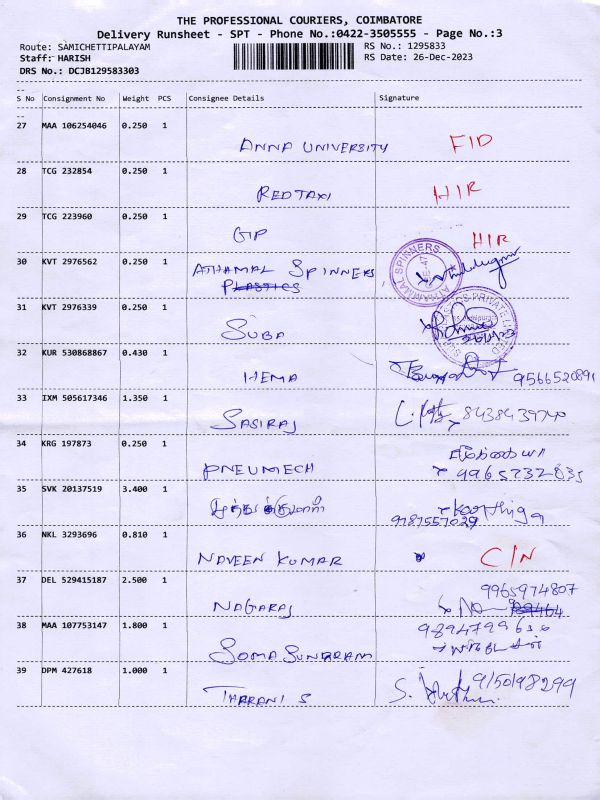 THE PROFESSIONAL COURIERS, COIMBATORE
Delivery Runsheet - SPT - Phone No.:0422-3505555 - Page No.:3
Route: SAMICHETTIPALAYAM RS No.: 1295833
Staff: HARISH RS Date: 26-Dec-2023
DRS No.: DCJB129583303
S No Consignment No Weight PCS Consignee Details Signature
27 MAA 106254046 0.250 1
ANNA UNIVERSITY FID
28 TCG 232854 0.250 1
REDTAXI HIR
29 TCG 223960 0.250 1
GIP HIR
30 KVT 2976562 0.250 1
ATHAMAL SPINNERS
PLASTICS
ATHAMMAL SPINNERS
31 KVT 2976339 0.250 1
SUBA
PLASTICS PRIVATE LIMITED
32 KUR 530868867 0.430 1
HEMA 9566520891
33 IXM 505617346 1.350 1
SASIRAJ 8438439740
34 KRG 197873 0.250 1
PNEUMECH
9965232835
35 SVK 20137519 3.400 1
Karthiga
9787557029
36 NKL 3293696 0.810 1
NAVEEN KUMAR C/N
37 DEL 529415187 2.500 1
9965974807
NAGARAJ
38 MAA 107753147 1.800 1
SOMA SUNDRAM
39 DPM 427618 1.000 1
THARANI S 9150198299